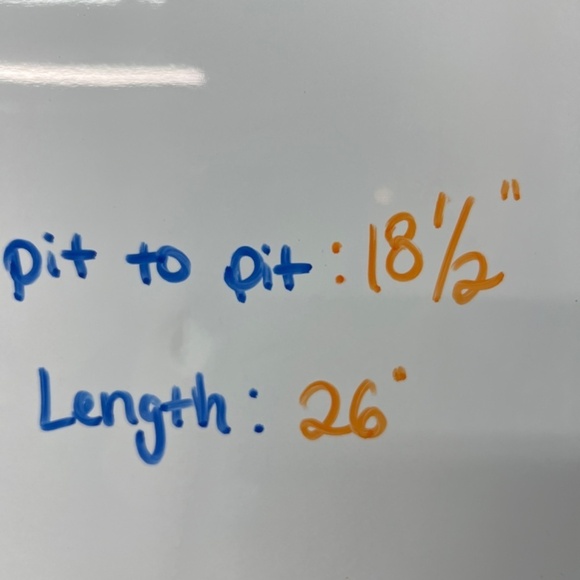 pit to pit : 18 1/2 "
Length : 26"